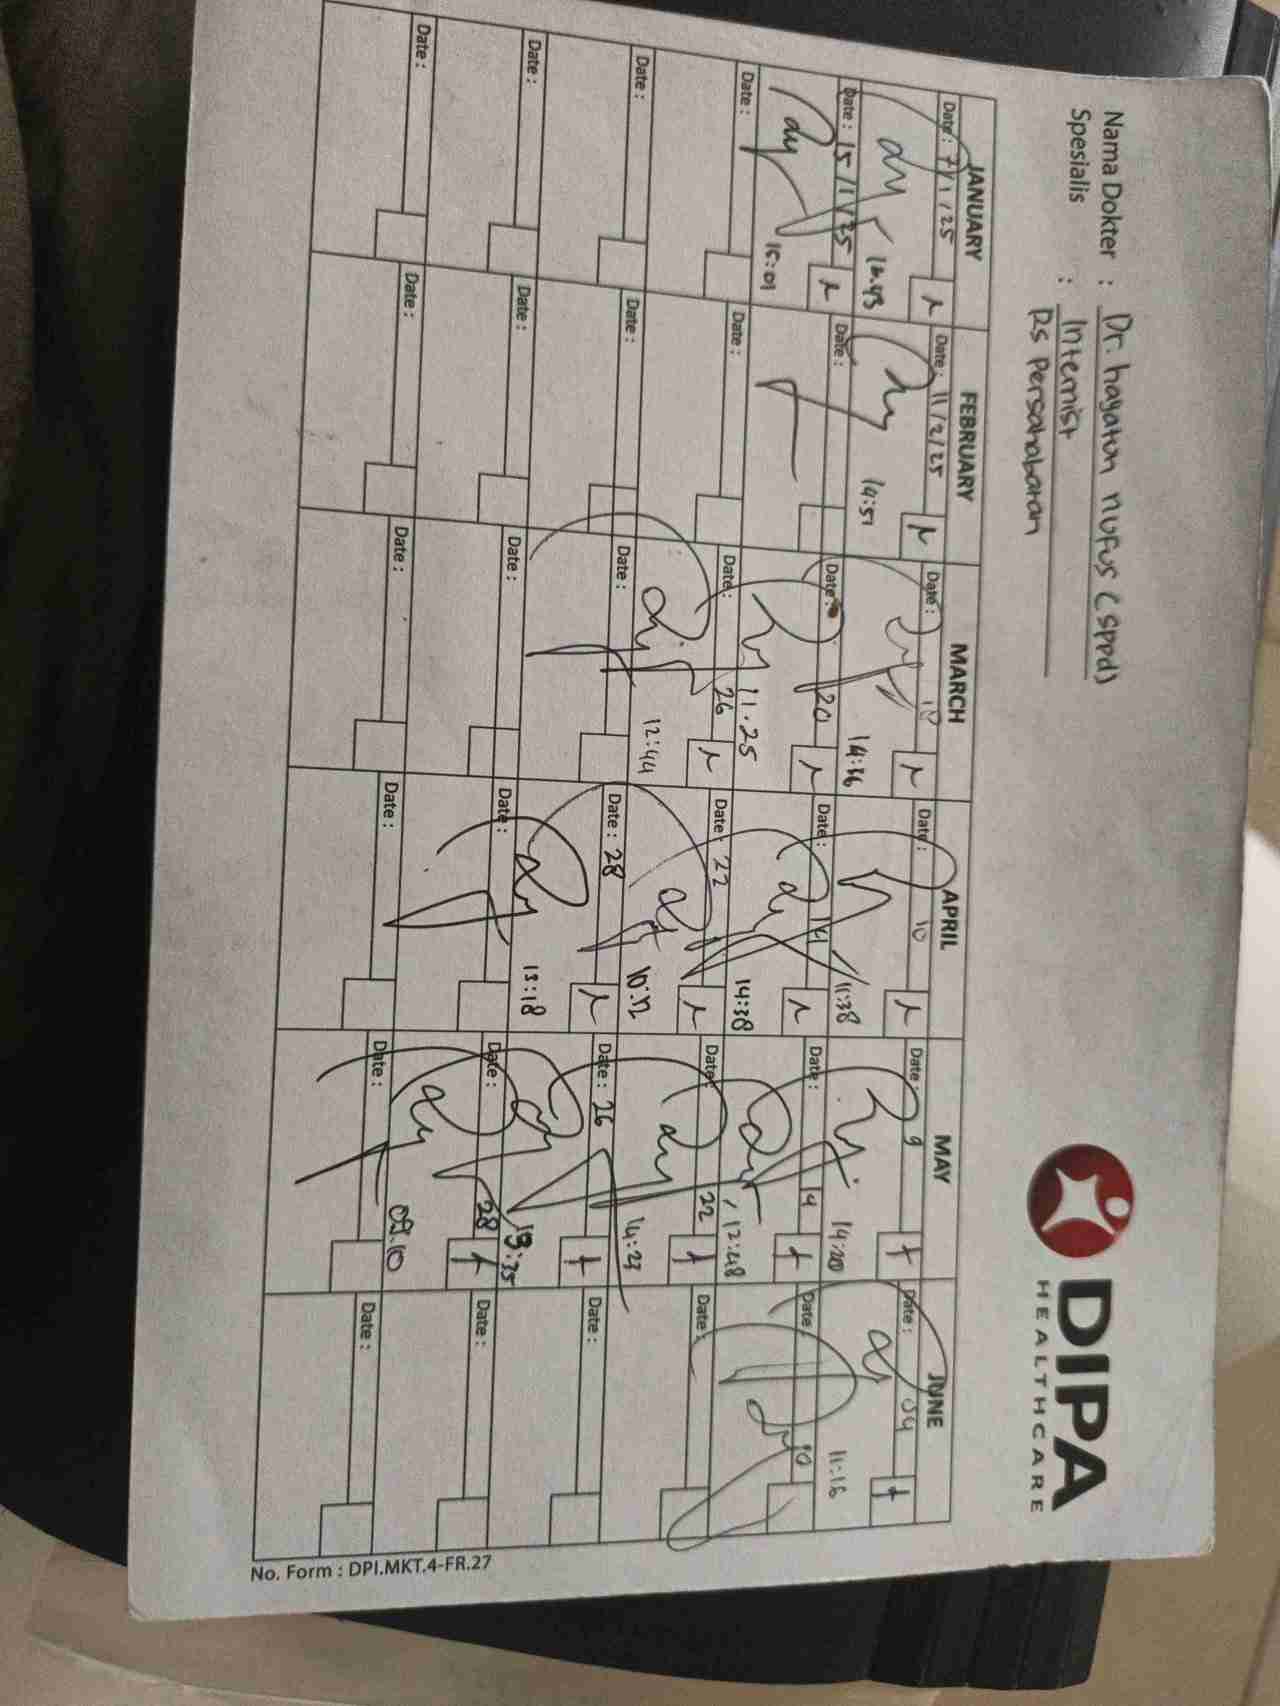 Nama Dokter : Dr. hayatun nufus (sppd)
Spesialis : Internist
RS Persahabatan
DIPA
HEALTHCARE
JANUARY FEBRUARY MARCH APRIL MAY JUNE
Date : 7/1/25 Date : 11/2/25 Date : 18 Date : 10 Date : 9 Date : 04
14:51 14:36 11:38 14:20 11:16
Date : 15/1/25 Date : Date : 20 Date : 14 Date : 14 Date : 10
15:01 11.25 14:38 12:48
Date : Date : Date : 26 Date : 22 Date : 22 Date :
12:44 14:23
Date : Date : Date : Date : 28 Date : 26 Date :
13:18 13:35
Date : Date : Date : Date : Date : 28 Date :
09.10
Date : Date : Date : Date : Date : Date :
No. Form : DPI.MKT.4-FR.27